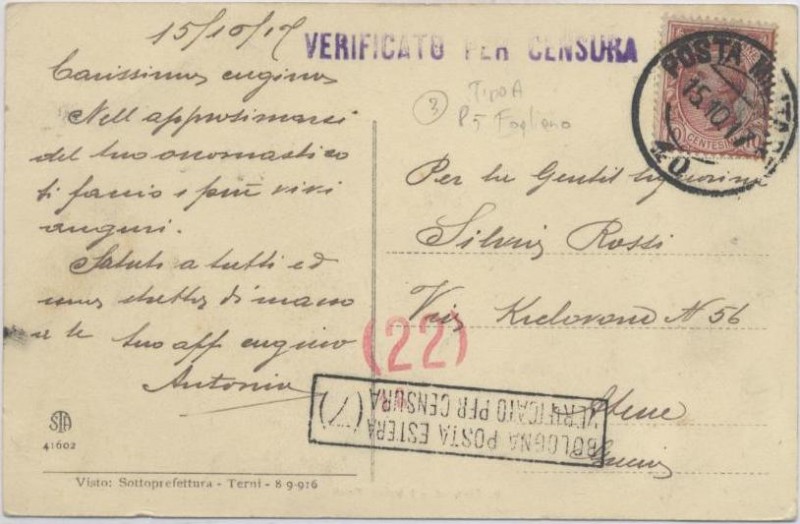 15/10/17
VERIFICATO PER CENSURA
Carissima cugina
Nell approsimarsi
del tuo onomastico
ti faccio i più vivi
auguri.
Saluti a tutti ed
una stretta di mano
a te tuo aff cugino
Antonio
STA
41602
Visto: Sottoprefettura - Terni - 8-9-916
3
Tipo A
P5 Fogliano
POSTA MILITARE
15.10.17
40
CENTESIMI
Per la Gentil Signorina
Silvia Rossi
Via N 56
Atene
Grecia
(22)
BOLOGNA POSTA ESTERA
VERIFICATO PER CENSURA
(7)